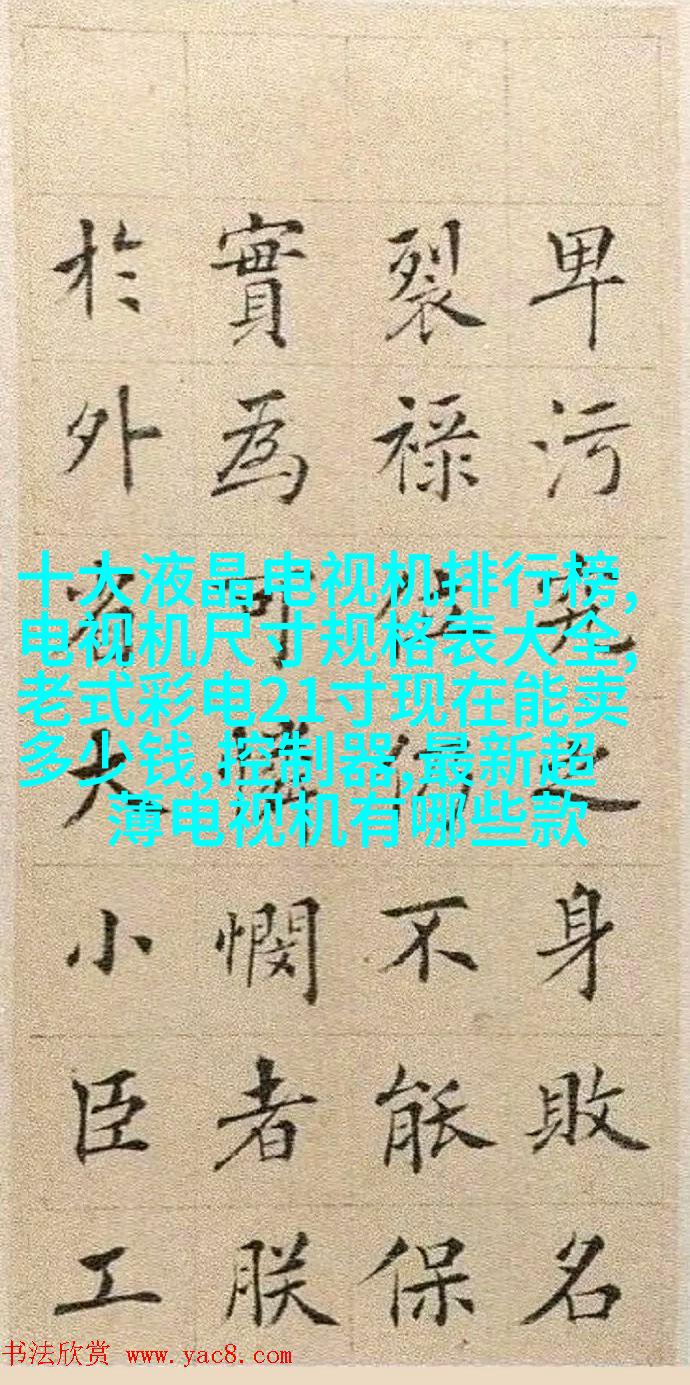 卑污之身敗名
裂祿位不能保
實為可憫者朕
於外大小臣工
十大液晶电视机排行榜,
电视机尺寸规格表大全,
老式彩电21寸现在能卖
多少钱,控制器,最新超
薄电视机有哪些款
书法欣赏 www.yac8.com